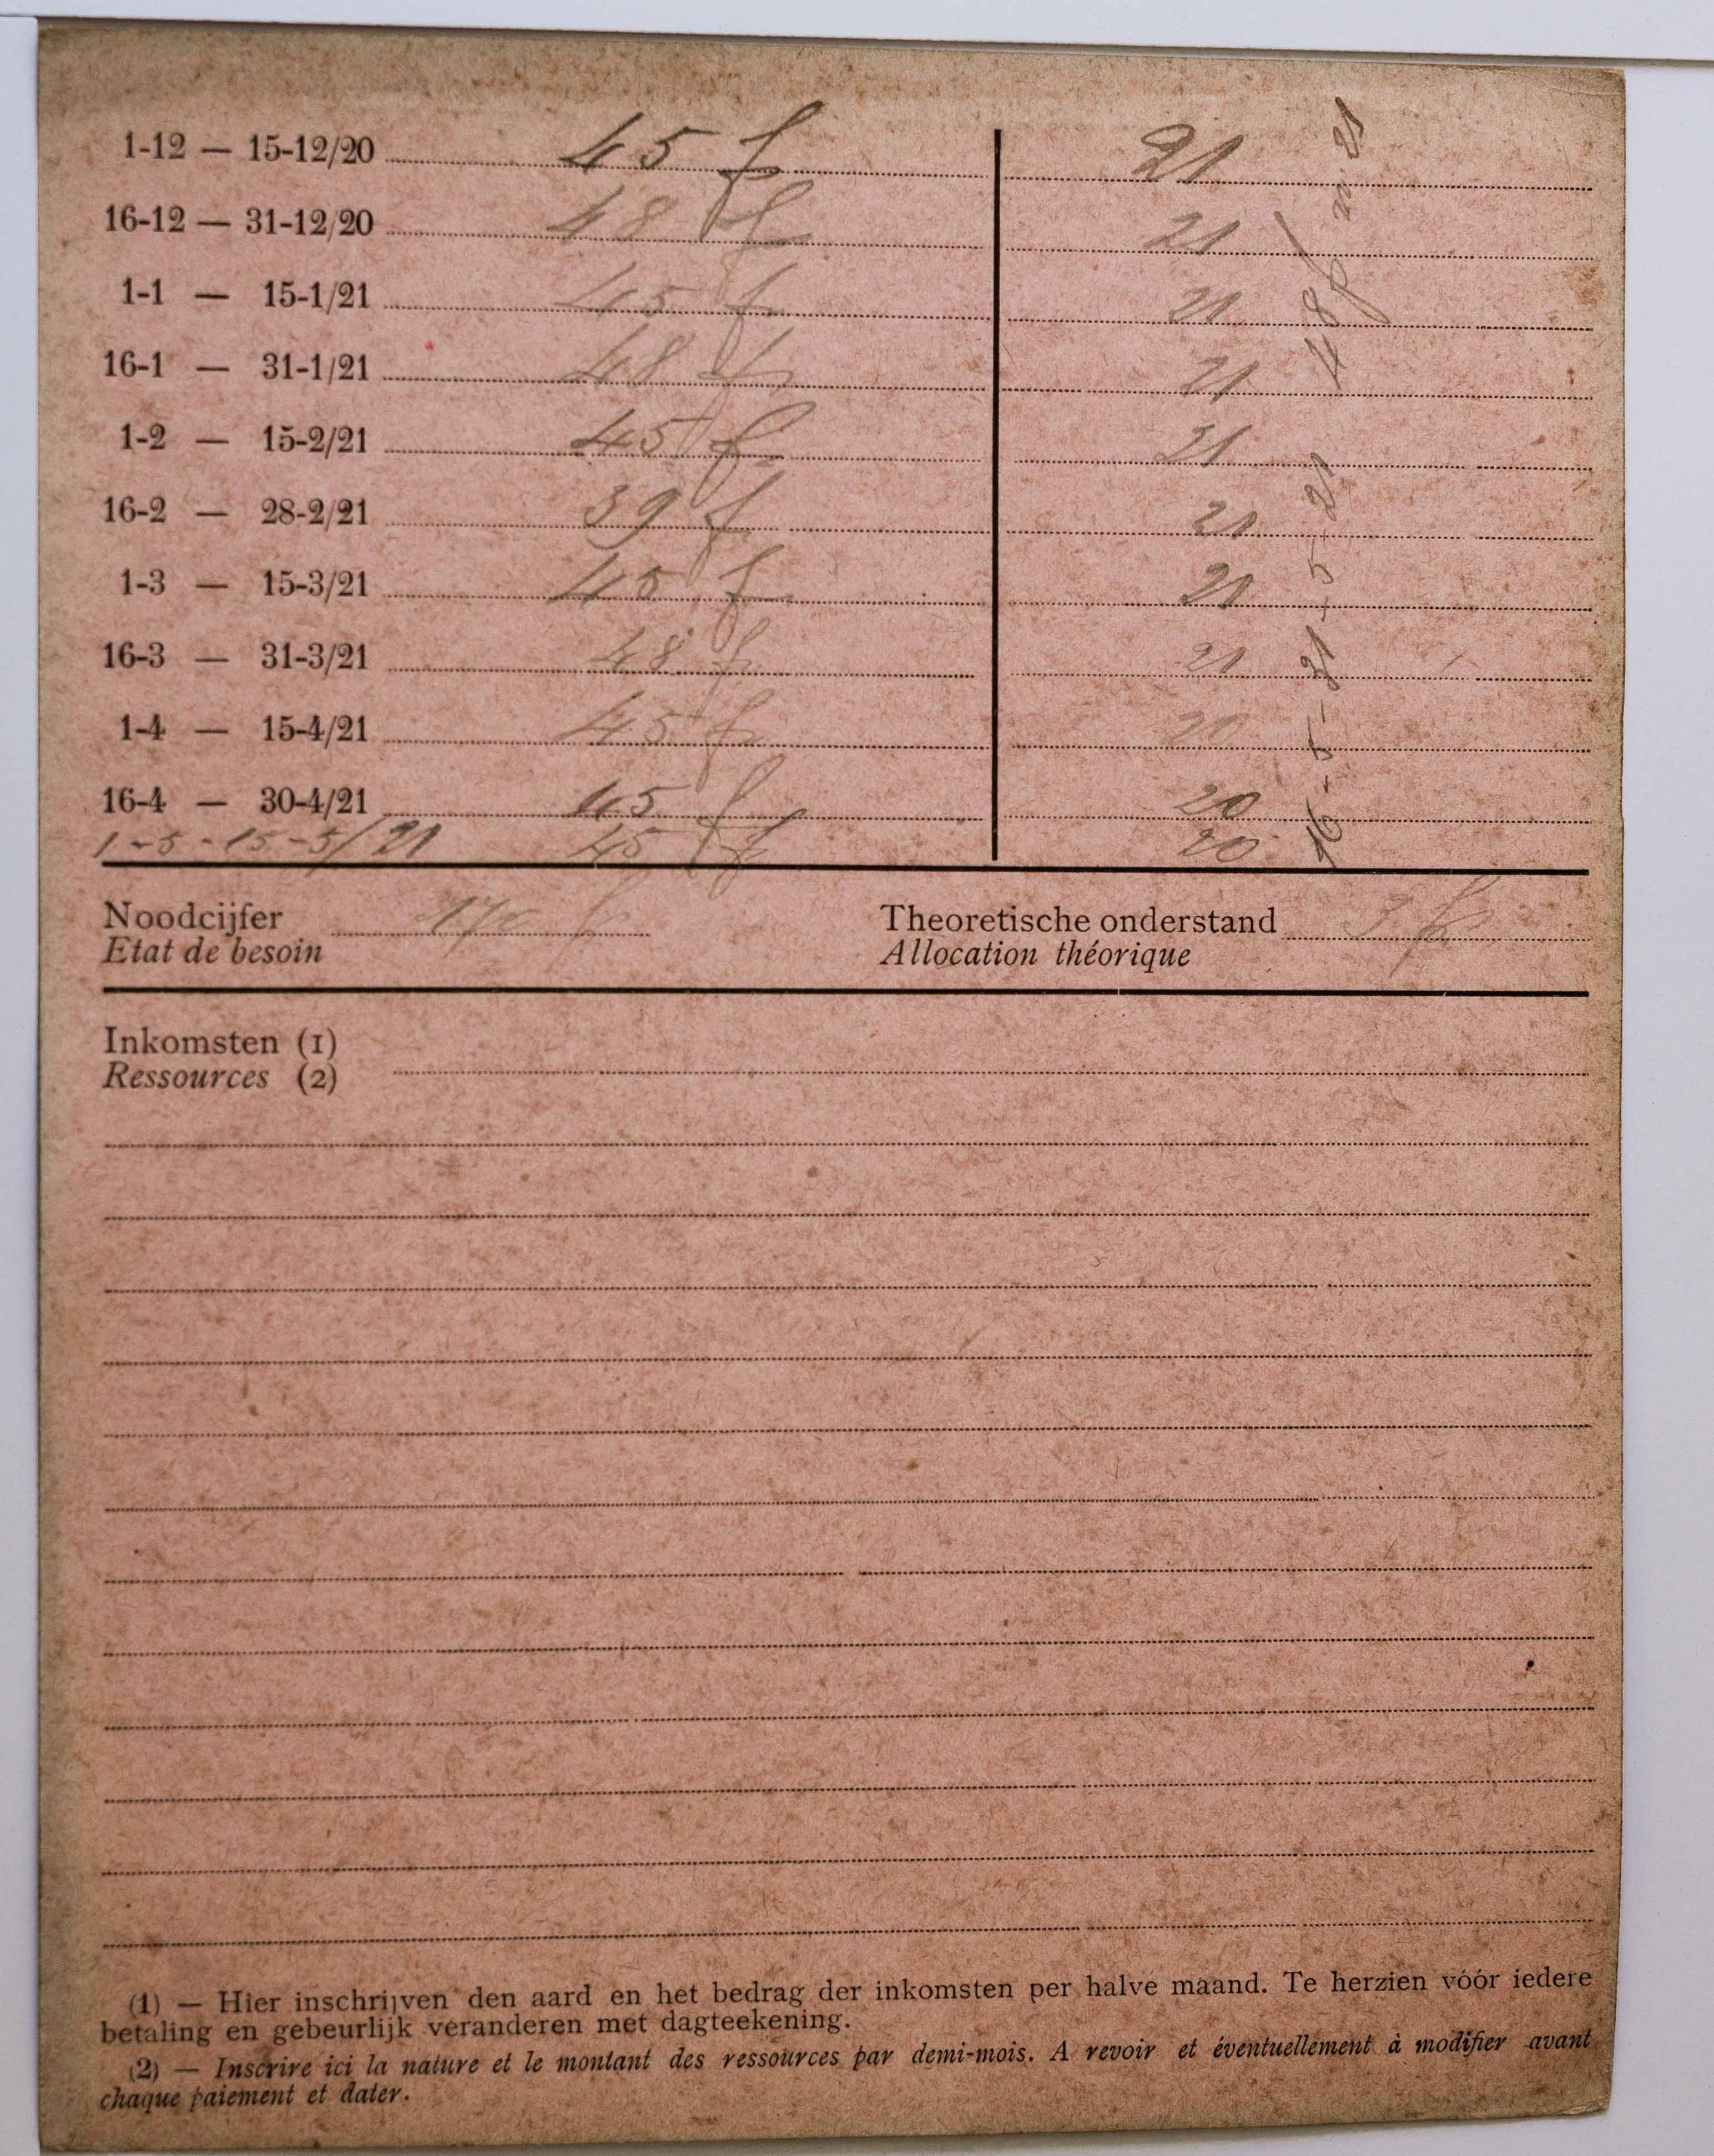 1-12 — 15-12/20 45 f 21
16-12 — 31-12/20 48 f 21
1-1 — 15-1/21 45 f 21
16-1 — 31-1/21 48 f 21
1-2 — 15-2/21 45 f 21
16-2 — 28-2/21 39 f 21
1-3 — 15-3/21 45 f 21
16-3 — 31-3/21 48 f 21
1-4 — 15-4/21 45 f 20
16-4 — 30-4/21 45 f 20
1-5-15-5/21 45 f 20
16-5-31-5-21 48 f/
Noodcijfer
Etat de besoin
Theoretische onderstand 3 f
Allocation théorique
Inkomsten (1)
Ressources (2)
(1) — Hier inschrijven den aard en het bedrag der inkomsten per halve maand. Te herzien vóór iedere
betaling en gebeurlijk veranderen met dagteekening.
(2) — Inscrire ici la nature et le montant des ressources par demi-mois. A revoir et éventuellement à modifier avant
chaque paiement et dater.